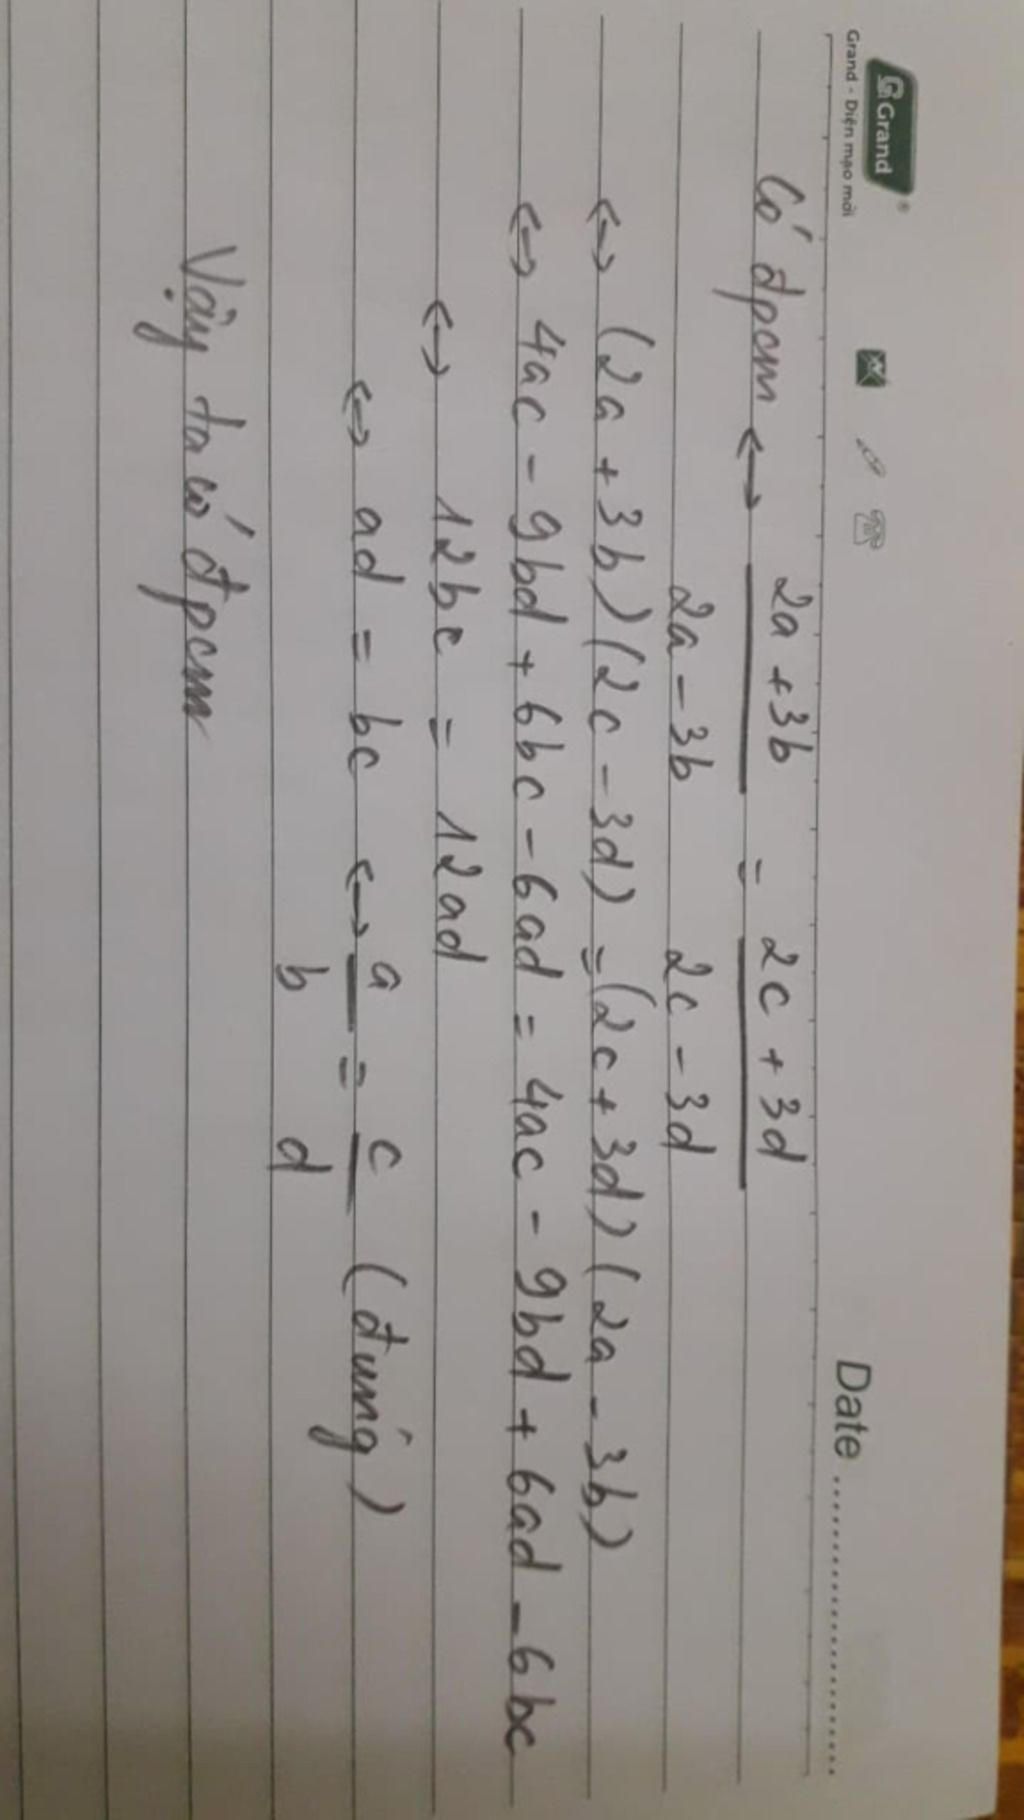 Grand®
Grand - Diện mạo mới
Date ..............................
Có đpcm ↔ 2a + 3b / 2a - 3b = 2c + 3d / 2c - 3d
↔ (2a + 3b)(2c - 3d) = (2c + 3d)(2a - 3b)
↔ 4ac - 9bd + 6bc - 6ad = 4ac - 9bd + 6ad - 6bc
↔ 12bc = 12ad
↔ ad = bc ↔ a/b = c/d (đúng)
Vậy ta có đpcm